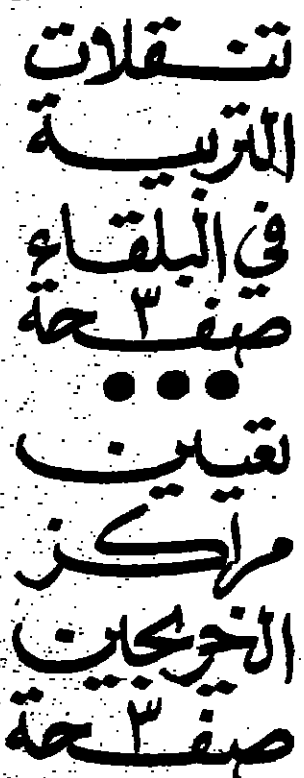 تنقلات
التربية
في البلقاء
صفحة ٣
●●●
تعيين
مراكز
الخريجين
صفحة ٣